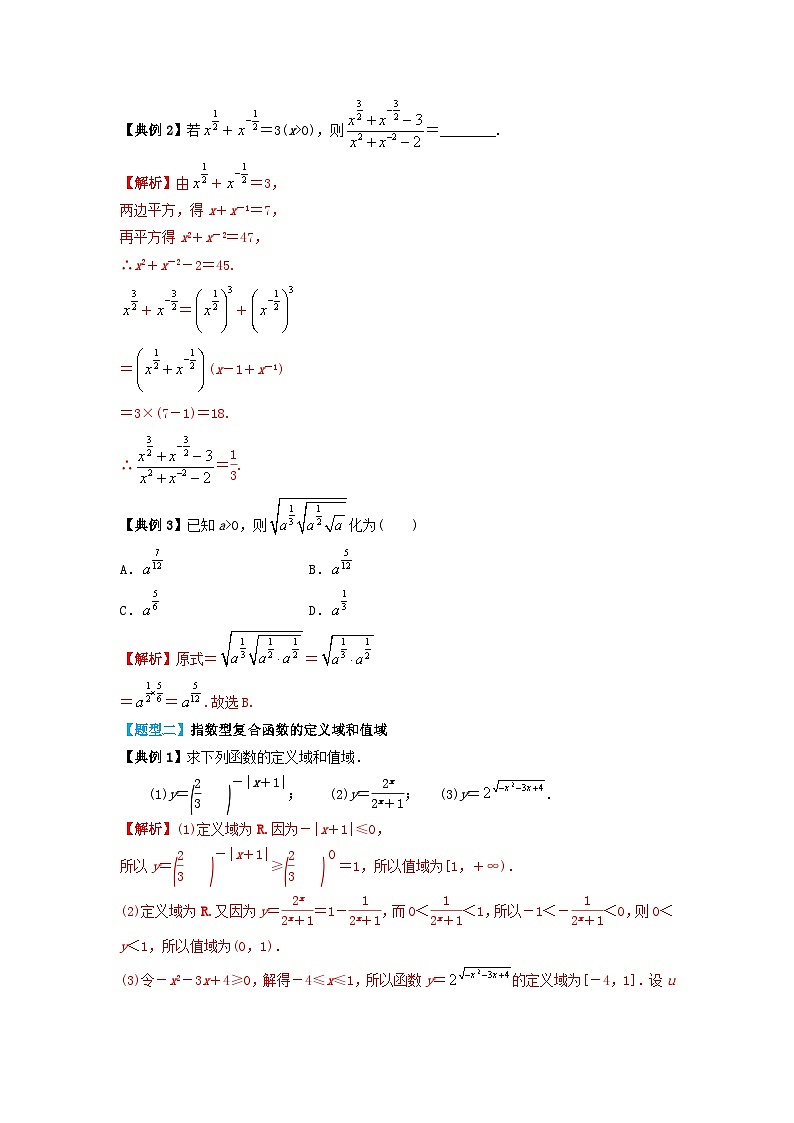 【典例2】若 x^{1/2}+x^{-1/2}=3(x>0),则 \frac{x^{3/2}+x^{-3/2}-3}{x^2+x^{-2}-2}=________.
【解析】由 x^{1/2}+x^{-1/2}=3,
两边平方,得 x+x^{-1}=7,
再平方得 x^2+x^{-2}=47,
∴x^2+x^{-2}-2=45.
x^{3/2}+x^{-3/2}=(x^{1/2})^3+(x^{-1/2})^3
=(x^{1/2}+x^{-1/2})(x-1+x^{-1})
=3×(7-1)=18.
∴\frac{x^{3/2}+x^{-3/2}-3}{x^2+x^{-2}-2}=\frac{1}{3}.
【典例3】已知 a>0,则 \sqrt{a^{1/3}\sqrt{a^{1/2}\sqrt{a}}} 化为(　　)
A. a^{7/12}　　B. a^{5/12}
C. a^{5/6}　　D. a^{1/3}
【解析】原式= \sqrt{a^{1/3}\sqrt{a^{1/2}·a^{1/2}}} = \sqrt{a^{1/3}·a^{1/2}}
=a^{1/2×5/6}=a^{5/12}.故选B.
【题型二】指数型复合函数的定义域和值域
【典例1】求下列函数的定义域和值域.
(1)y=(2/3)^{-|x+1|};　(2)y=\frac{2^x}{2^x+1};　(3)y=2^{\sqrt{-x^2-3x+4}}.
【解析】(1)定义域为 R.因为-|x+1|≤0,
所以 y=(2/3)^{-|x+1|}≥(2/3)^0=1,所以值域为[1,+∞).
(2)定义域为 R.又因为 y=\frac{2^x}{2^x+1}=1-\frac{1}{2^x+1},而0<\frac{1}{2^x+1}<1,所以-1<-\frac{1}{2^x+1}<0,则0<
y<1,所以值域为(0,1).
(3)令-x^2-3x+4≥0,解得-4≤x≤1,所以函数 y=2^{\sqrt{-x^2-3x+4}}的定义域为[-4,1].设 u